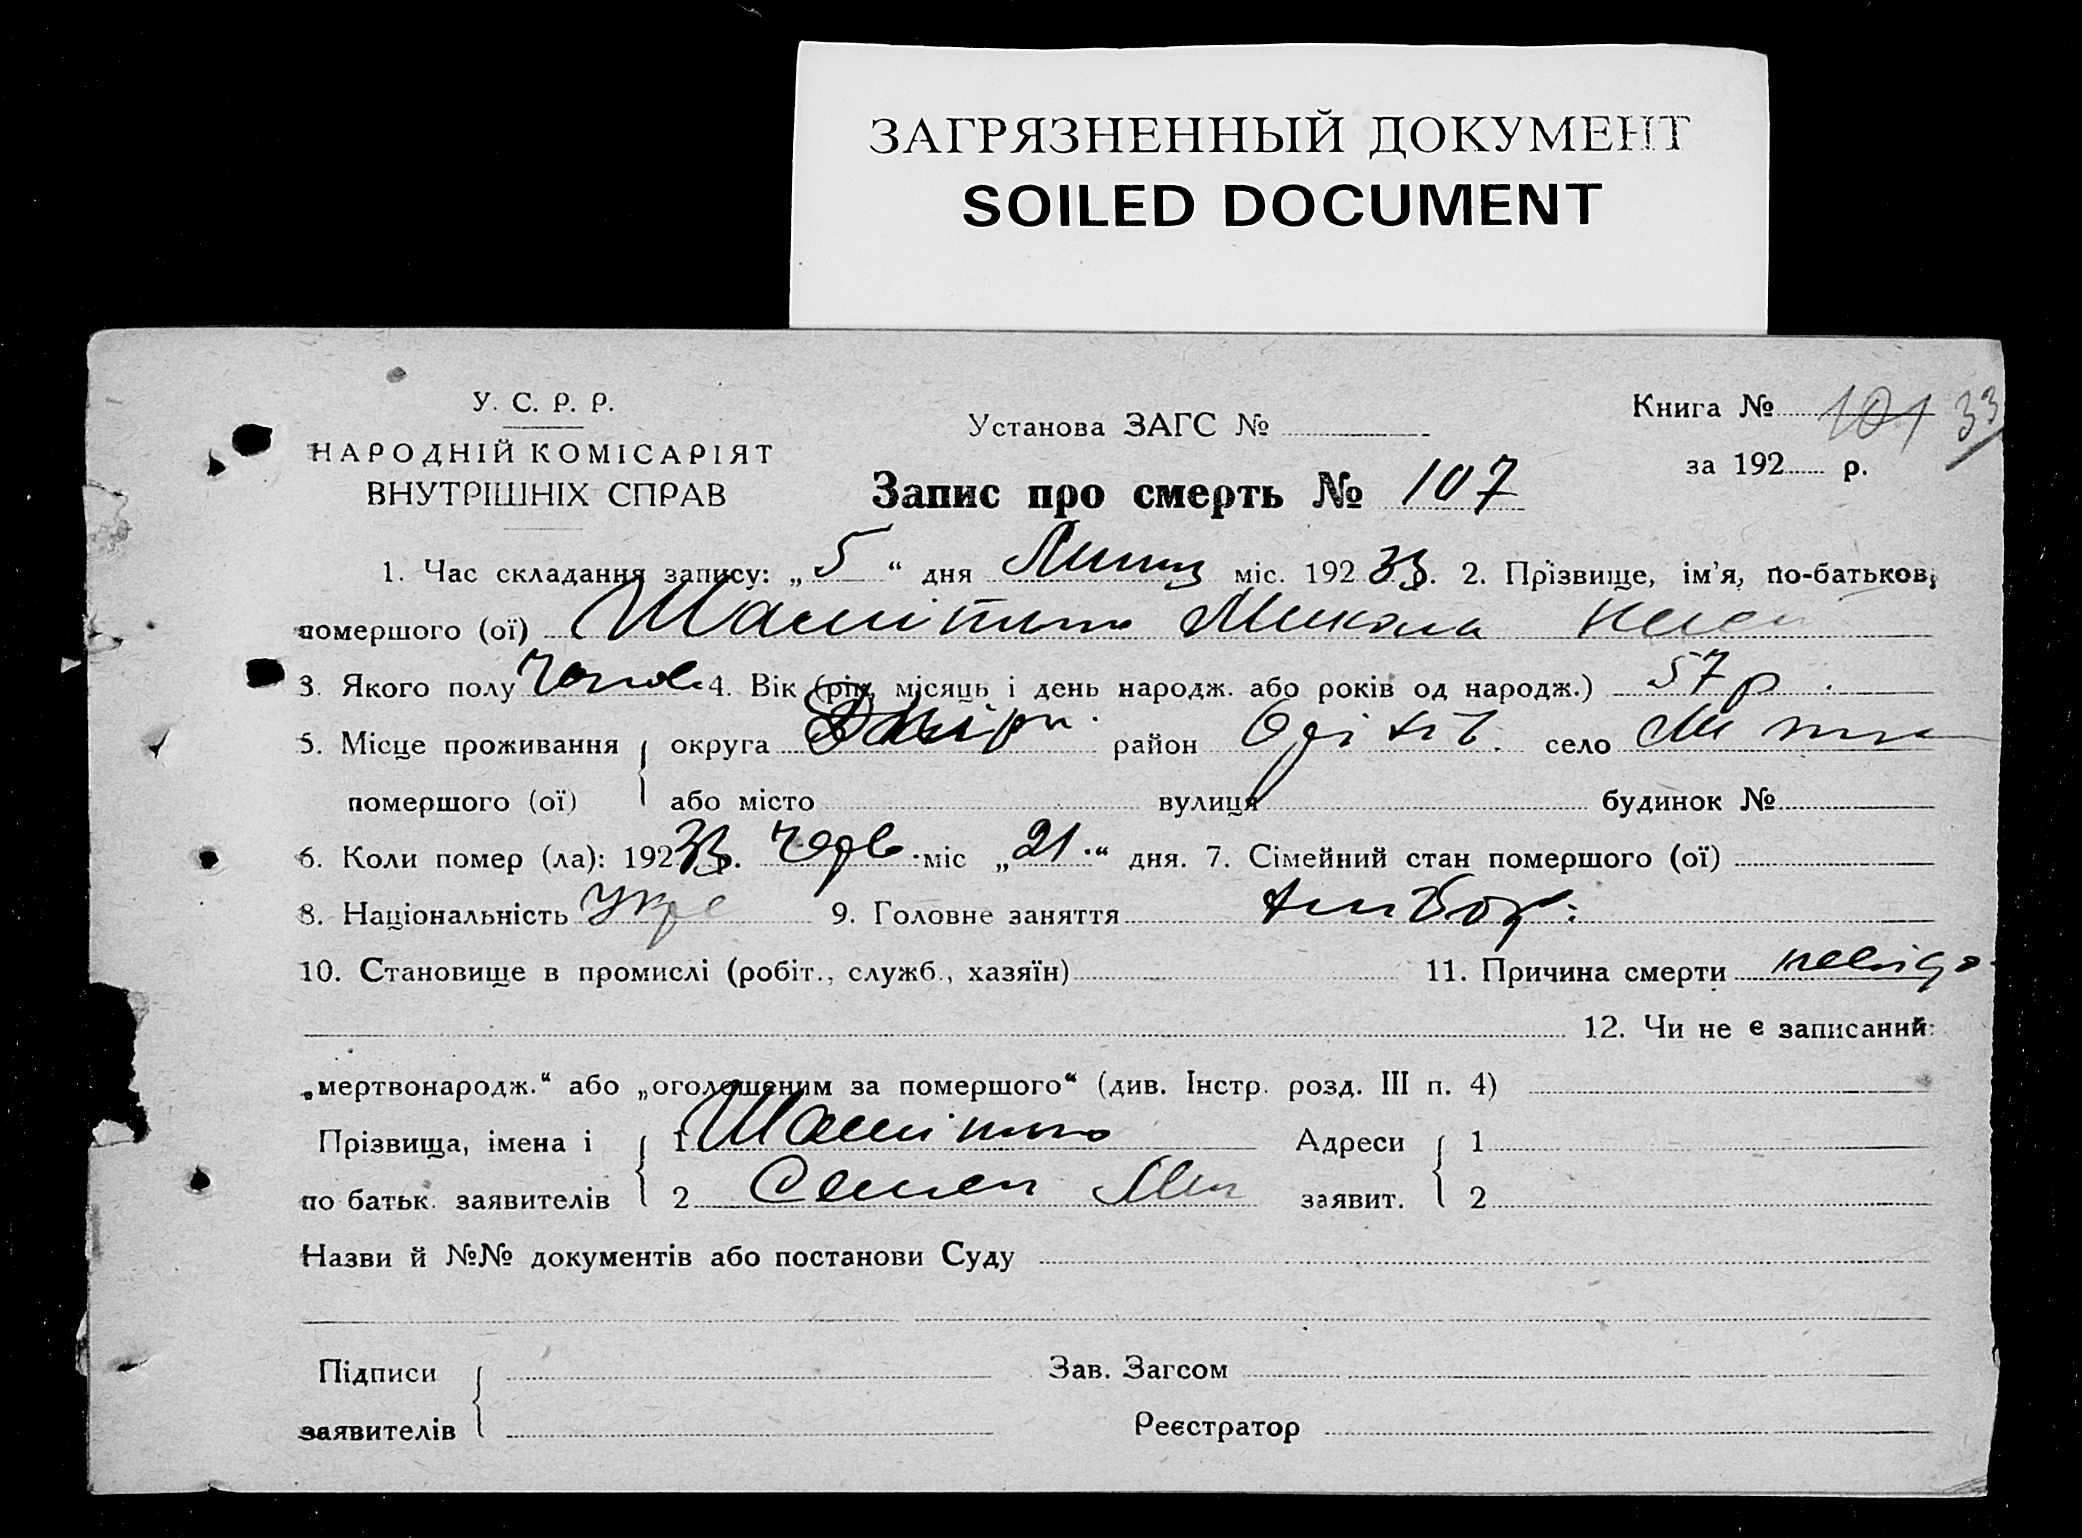 ЗАГРЯЗНЕННЫЙ ДОКУМЕНТ
SOILED DOCUMENT
У. С. Р. Р.
НАРОДНІЙ КОМІСАРІЯТ
ВНУТРІШНІХ СПРАВ
Установа ЗАГС №
Книга № 101 33
за 192 р.
Запис про смерть № 107
1. Час складання запису: „5“ дня Липця міс. 192 33. 2. Прізвище, ім'я, по-батьков,
помершого (ої) Микола
3. Якого полу Чолов. 4. Вік (рік, місяць і день народж. або років од народж.) 57 р.
5. Місце проживання округа район село
помершого (ої) або місто вулиця будинок №
6. Коли помер (ла): 192 33. черв. міс „21.“ дня. 7. Сімейний стан помершого (ої)
8. Національність Укр 9. Головне заняття
10. Становище в промислі (робіт., служб., хазяїн) 11. Причина смерти невідо
12. Чи не є записаний:
„мертвонародж.“ або „оголошеним за помершого“ (див. Інстр. розд. III п. 4)
Прізвища, імена і 1 Адреси 1
по батьк. заявителів 2 Семен заявит. 2
Назви й №№ документів або постанови Суду
Підписи Зав. Загсом
заявителів Реєстратор